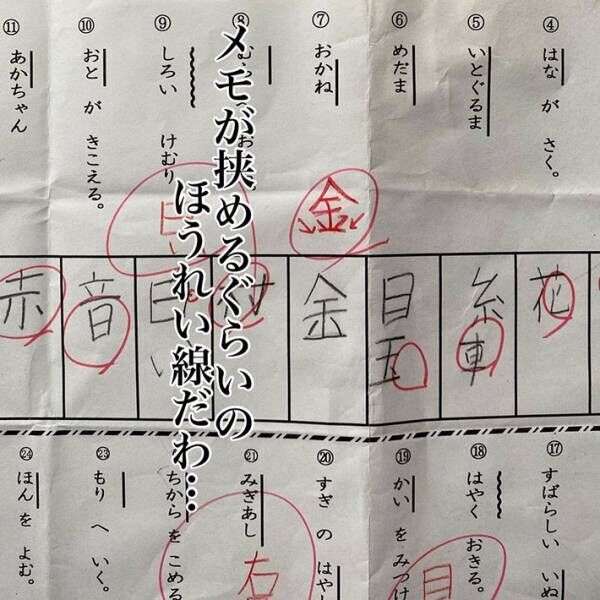 ④ はな が さく。
⑤ いとぐるま
⑥ めだま
⑦ おかね
⑧
⑨ しろい けむり
⑩ おと が きこえる。
⑪ あかちゃん
メモが挟めるぐらいの
ほうれい線だわ…
金
花
糸車
目玉
金
村
音
赤
⑰ すばらしい いぬ
⑱ はやく おきる。
⑲ かい を みつけ
⑳ すぎ の はやし
㉑ みぎあし
ちから を こめる
㉓ もり へ いく。
㉔ ほん を よむ。
目
右